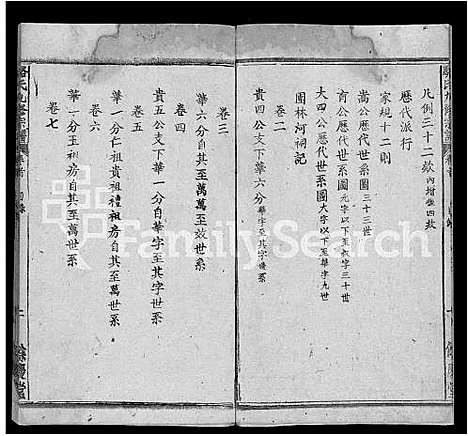 凡例三十二欵 內增補四欵
歷代派行
家規十二則
嵩公歷代世系圖 三十三世
育公歷代世系圖 元字以下至叔字三十世
大四公歷代世系圖 大字以下至華字九世
團林河祠記
卷二
貴四公支下華六分 華字至其字僊系
卷三
華六分自其至萬萬至效世系
卷四
貴五公支下華一分自華字至其字世系
卷五
華一分仁祖貴祖禮祖房自其至萬世系
卷六
華一分玉祖房自其至萬世系
卷七
餘慶堂
FamilySearch